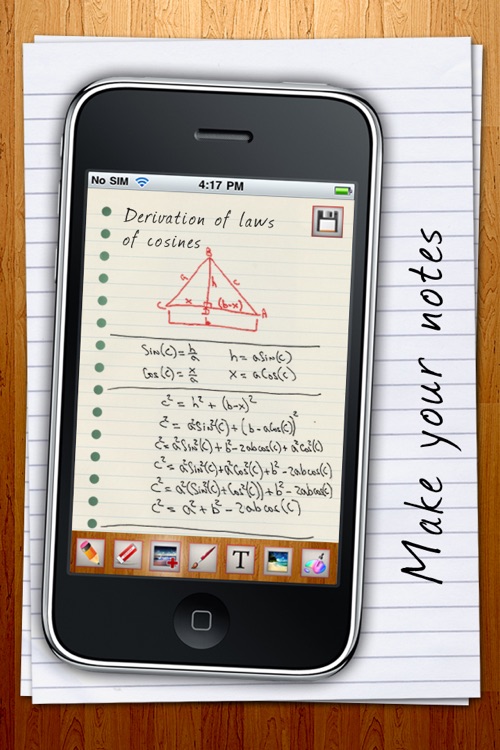 No SIM 4:17 PM
Derivation of laws
of cosines
B
a h c
C x D (b-x) A
b
Sin(C) = h/a h = aSin(C)
Cos(C) = x/a x = aCos(C)
c² = h² + (b-x)²
c² = a²Sin²(C) + (b - aCos(C))²
c² = a²Sin²(C) + b² - 2abcos(C) + a²Cos²(C)
c² = a²Sin²(C) + a²Cos²(C) + b² - 2abcos(C)
c² = a²(Sin²(C) + Cos²(C)) + b² - 2abcos(C)
c² = a² + b² - 2abcos(C)
T
Make your notes